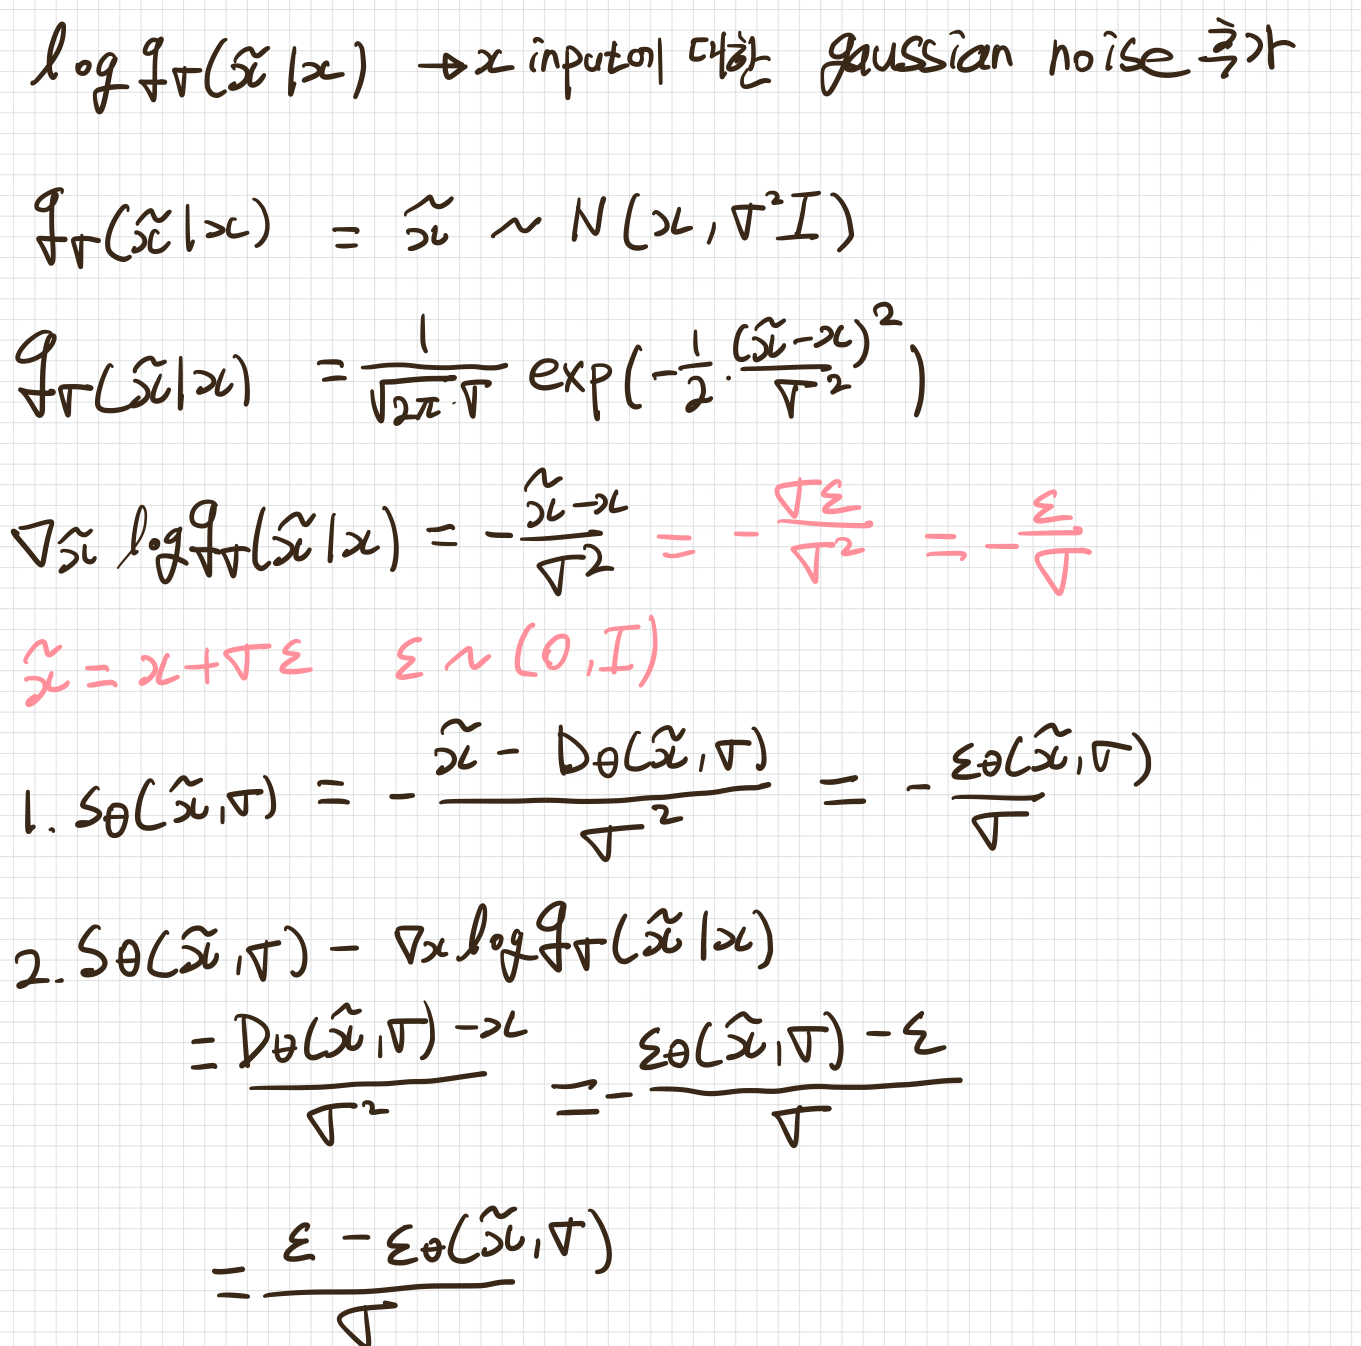 log q_σ(x̃|x) → x input에 대한 gaussian noise 추가
q_σ(x̃|x) = x̃ ~ N(x, σ²I)
q_σ(x̃|x) = 1/(√2π·σ) exp(-1/2 · (x̃-x)²/σ²)
∇_x̃ log q_σ(x̃|x) = -(x̃-x)/σ² = -σε/σ² = -ε/σ
x̃ = x+σε ε ~ (0, I)
1. S_θ(x̃,σ) = -(x̃ - D_θ(x̃,σ))/σ² = -ε_θ(x̃,σ)/σ
2. S_θ(x̃,σ) - ∇_x log q_σ(x̃|x)
= (D_θ(x̃,σ) - x)/σ² = -(ε_θ(x̃,σ) - ε)/σ
= (ε - ε_θ(x̃,σ))/σ